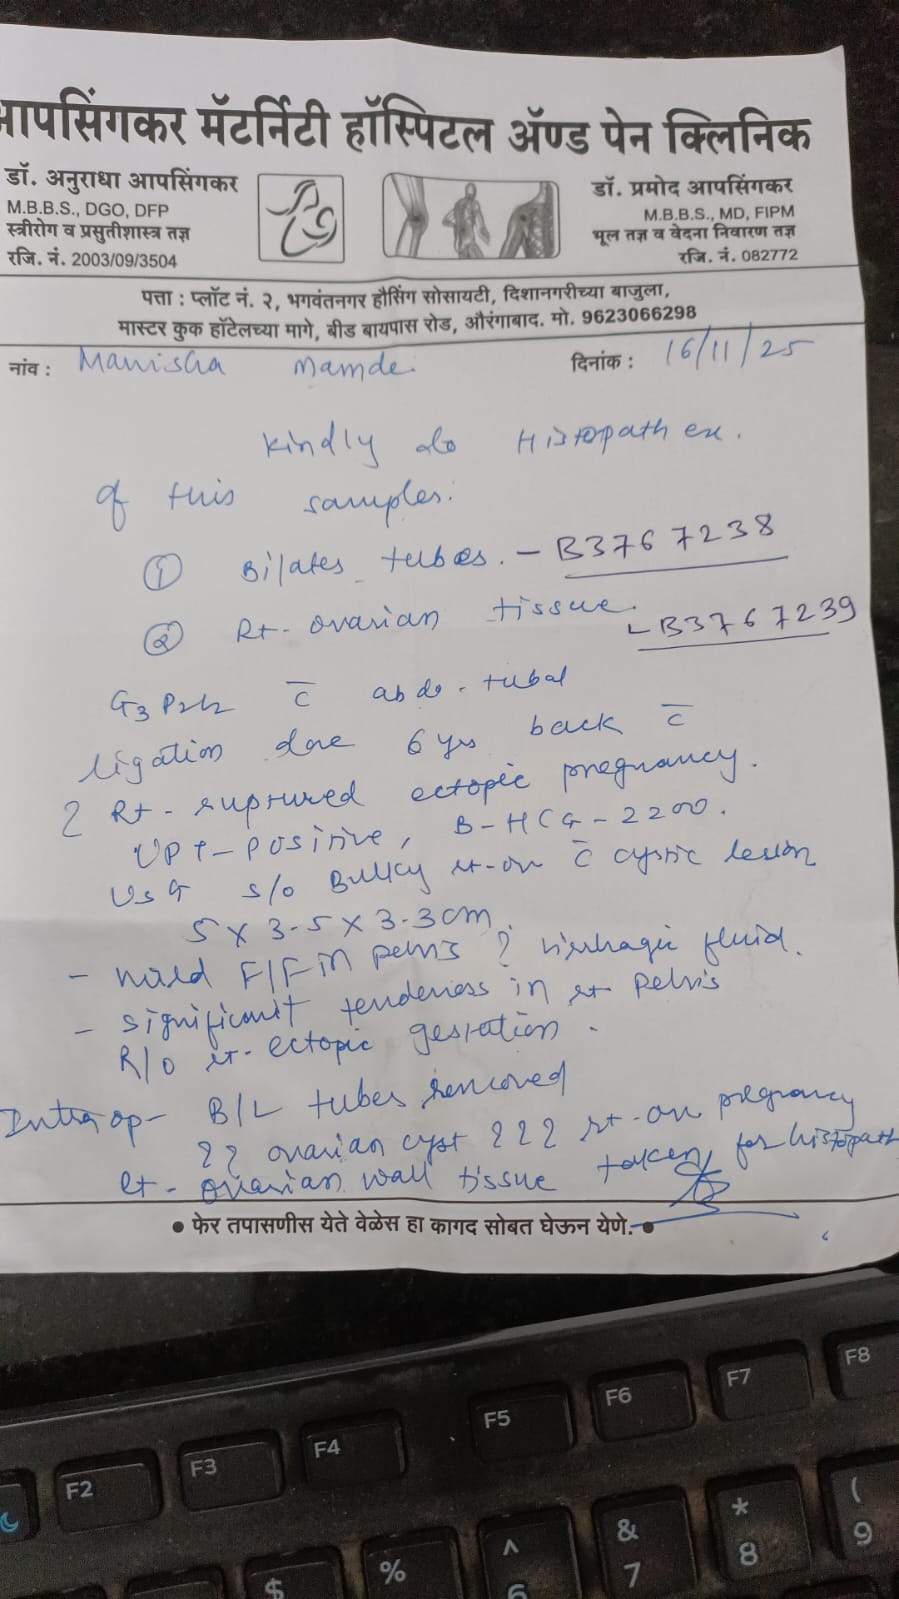 आपसिंगकर मॅटर्निटी हॉस्पिटल ॲण्ड पेन क्लिनिक
डॉ. अनुराधा आपसिंगकर
M.B.B.S., DGO, DFP
स्त्रीरोग व प्रसुतीशास्त्र तज्ञ
रजि. नं. 2003/09/3504
डॉ. प्रमोद आपसिंगकर
M.B.B.S., MD, FIPM
भूल तज्ञ व वेदना निवारण तज्ञ
रजि. नं. 082772
पत्ता : प्लॉट नं. २, भगवंतनगर हौसिंग सोसायटी, दिशानगरीच्या बाजुला,
मास्टर कुक हॉटेलच्या मागे, बीड बायपास रोड, औरंगाबाद. मो. 9623066298
नांव : Manisha Mamde. दिनांक : 16/11/25
Kindly do Histopath ex.
of this samples.
① Bilates tubes. - B3767238
② Rt- ovarian tissue. - B3767239
G3 P2L2 c̄ abdo. tubal
ligation done 6 yrs back c̄
? Rt- ruptured ectopic pregnancy.
UPT-Positive, B-HCG-2200.
USG s/o Bulky rt-ov c̄ cystic lesion
5 x 3.5 x 3.3 cm.
- mild F/F in pelvis ? fluid.
- significant tenderness in rt pelvis
R/O rt- ectopic gestation.
Intra op- B/L tubes removed
?? ovarian cyst ??? rt-ov pregnancy
Rt- ovarian wall tissue taken for histopath
• फेर तपासणीस येते वेळेस हा कागद सोबत घेऊन येणे. •
F2 F3 F4 F5 F6 F7 F8
$ % ^ 6 & 7 * 8 ( 9